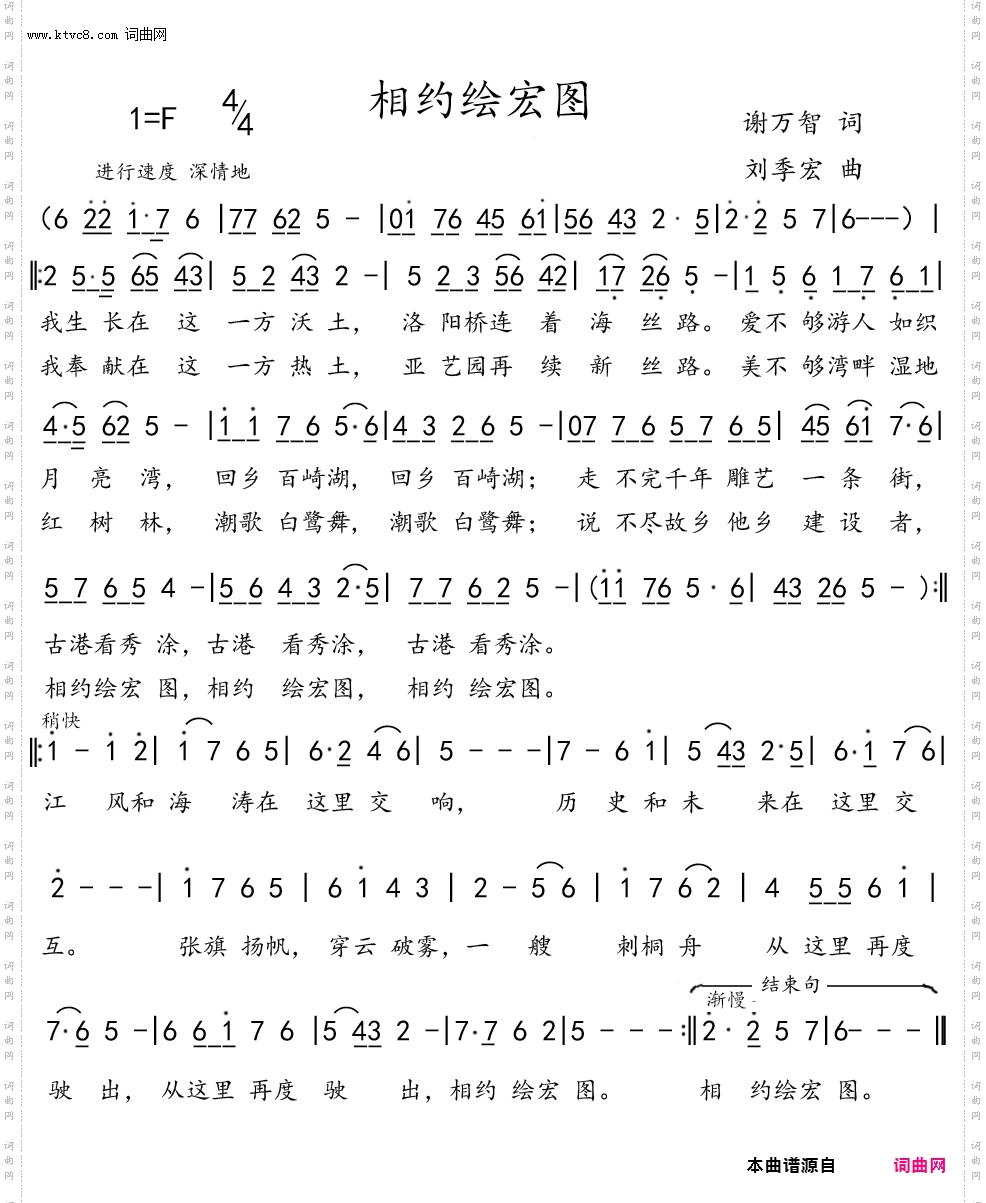 www.ktvc8.com 词曲网
相约绘宏图
1=F 4/4
谢万智 词
进行速度 深情地
刘季宏 曲
(6 22 1·7 6 |77 62 5 - |01 76 45 61|56 43 2· 5|2·2 5 7|6---) |
‖:2 5·5 65 43| 5 2 43 2 -| 5 2 3 56 42| 17 26 5 -|1 5 6 1·7 6 1|
我生 长在 这 一方 沃 土, 洛 阳桥连 着 海 丝 路。 爱不 够游人 如织
我奉 献在 这 一方 热 土, 亚 艺园再 续 新 丝 路。 美不 够湾畔 湿地
4·5 62 5 - |1 1 7 6 5·6|4 3 2 6 5 -|07 7 6 5 7 6 5| 45 61 7·6|
月 亮 湾, 回乡 百崎湖, 回乡 百崎湖; 走 不完千年 雕艺 一 条 街,
红 树 林, 潮歌 白鹭舞, 潮歌 白鹭舞; 说 不尽故乡 他乡 建 设 者,
5 7 6 5 4 -|5 6 4 3 2·5| 7 7 6 2 5 -|(11 76 5· 6| 43 26 5 - ):‖
古港看秀 涂, 古港 看秀涂, 古港 看秀涂。
相约绘宏 图, 相约 绘宏图, 相约 绘宏图。
稍快
‖:1 - 1 2| 1 7 6 5| 6·2 4 6| 5 - - -|7 - 6 1| 5 43 2·5| 6·1 7 6|
江 风和 海 涛在 这里 交 响, 历 史 和 未 来在 这里 交
2 - - -| 1 7 6 5 | 6 1 4 3 | 2 - 5 6 | 1 7 6 2 | 4 5 5 6 1 |
互。 张旗 扬帆, 穿云 破雾, 一 艘 刺桐 舟 从 这里 再度
结束句
渐慢
7·6 5 -|6 6 1 7 6 |5 43 2 -|7·7 6 2 |5 - - - :‖2· 2 5 7 |6- - - ‖
驶 出, 从这里 再度 驶 出, 相约 绘宏 图。 相 约绘宏 图。
本曲谱源自 词曲网
词曲网